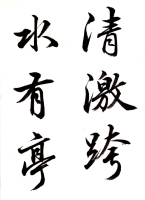 清激跨
水有亭